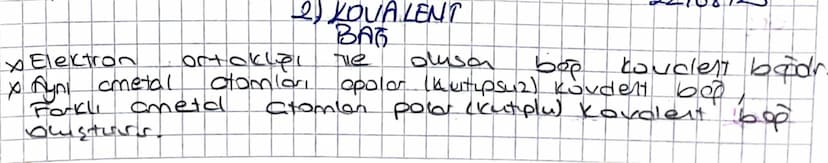 2) KOVALENT
BAĞ
x Elektron ortaklığı ile oluşan bağ kovalent bağdır.
x Aynı ametal atomları apolar (kutupsuz) kovalent bağ,
Farklı ametal atomları polar (kutplu) kovalent bağ
oluşturur.